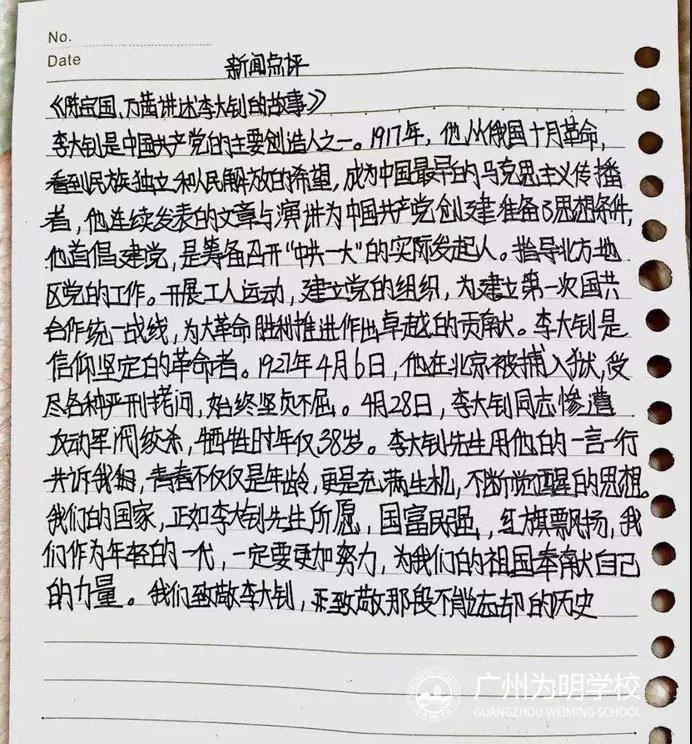 No.
Date
新闻点评
《陈宝国、万茜讲述李大钊的故事》
李大钊是中国共产党的主要创造人之一。1917年,他从俄国十月革命,
看到民族独立和人民解放的希望,成为中国最早的马克思主义传播
者,他连续发表的文章与演讲为中国共产党创建准备了思想条件,
他首倡建党,是筹备召开“中共一大”的实际发起人。指导北方地
区党的工作。开展工人运动,建立党的组织,为建立第一次国共
合作统一战线,为大革命胜利推进作出卓越的贡献。李大钊是
信仰坚定的革命者。1927年4月6日,他在北京被捕入狱,受
尽各种严刑拷问,始终坚贞不屈。4月28日,李大钊同志惨遭
反动军阀绞杀,牺牲时年仅38岁。李大钊先生用他的一言一行
告诉我们,青春不仅仅是年龄,更是充满生机,不断觉醒的思想。
我们的国家,正如李大钊先生所愿,国富民强,红旗飘扬,我
们作为年轻的一代,一定要更加努力,为我们的祖国奉献自己
的力量。我们致敬李大钊,更致敬那段不能忘却的历史
广州为明学校
GUANGZHOU WEIMING SCHOOL